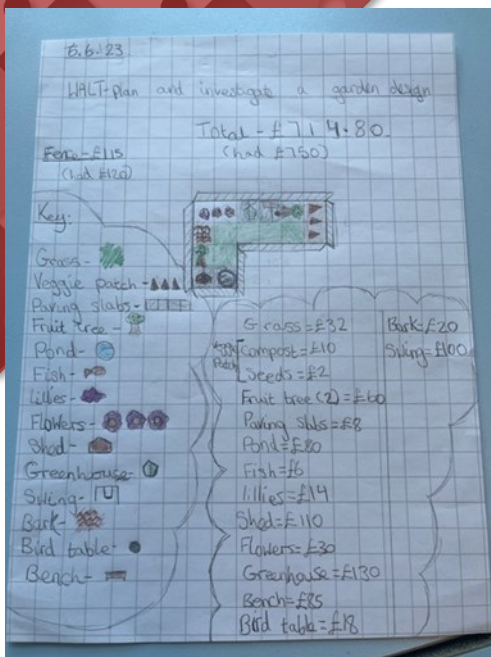 6.6.23
WALT-Plan and investigate a garden design
Total - £714.80
(had £750)
Fence-£115
(had £120)
Key:
Grass-
Veggie patch-
Paving slabs-
Fruit tree-
Pond-
Fish-
Lillies-
Flowers-
Shed-
Greenhouse-
Swing-
Bark-
Bird table-
Bench-
Grass=£32
Veggie Patch
Compost=£10
Seeds=£2
Fruit tree (2)=£60
Paving slabs=£8
Pond=£80
Fish=£6
lillies=£14
Shed=£110
Flowers=£30
Greenhouse=£130
Bench=£85
Bird table=£18
Bark=£20
Swing=£100